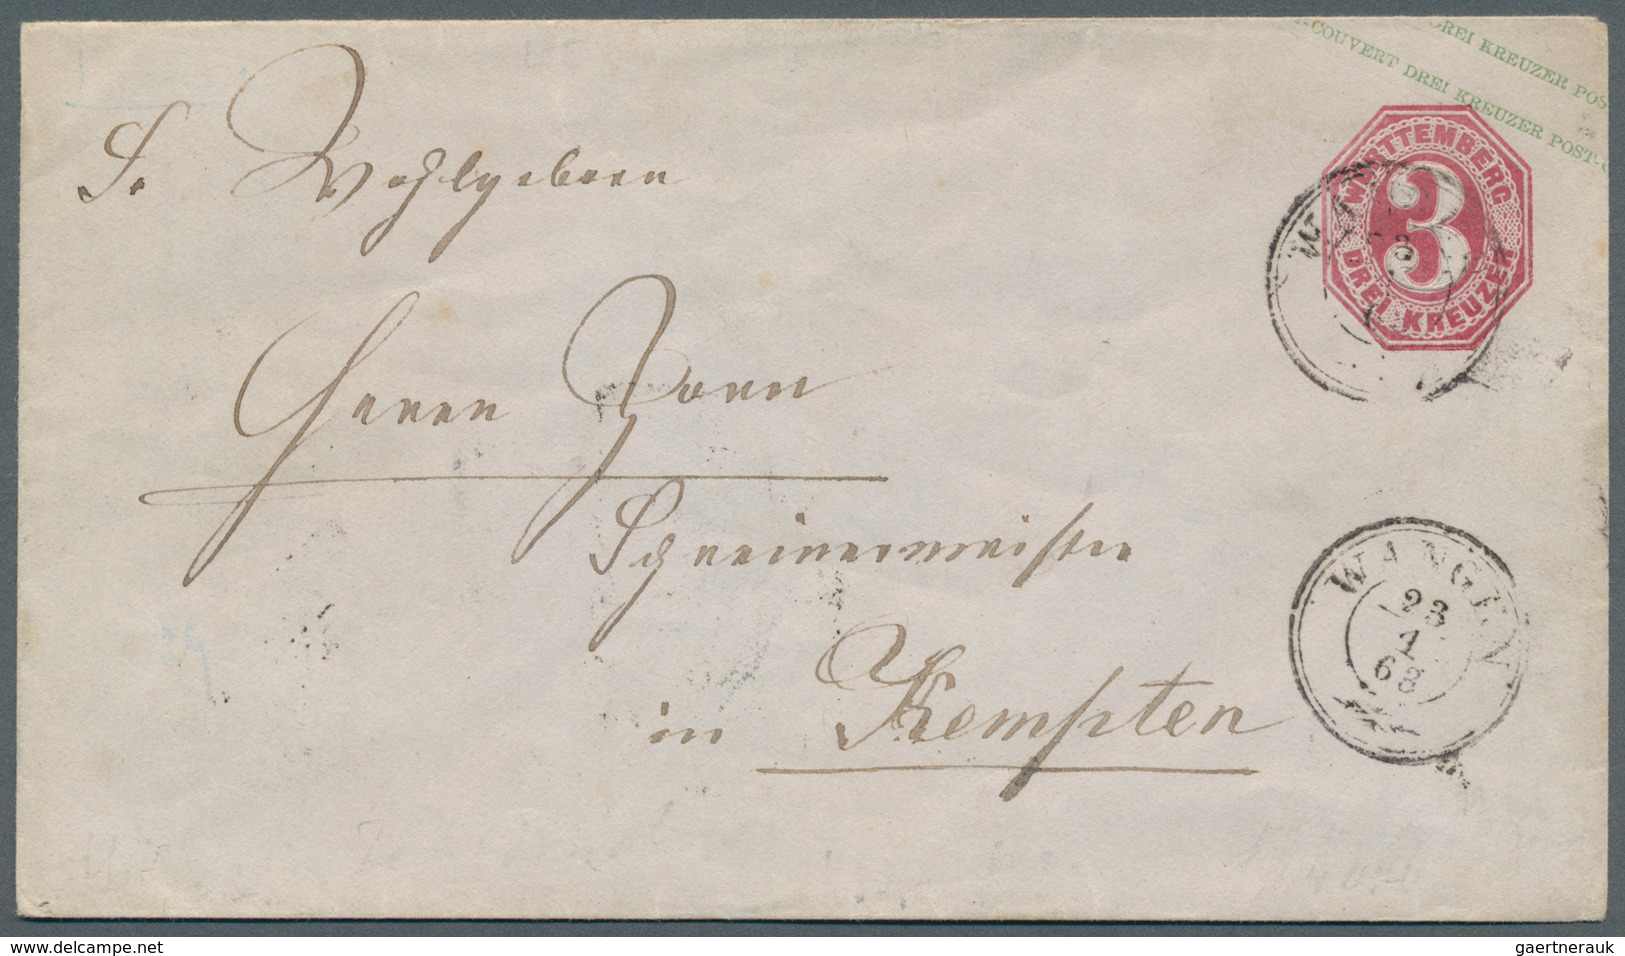 DREI KREUZER POS
COUVERT DREI KREUZER POST-
WÜRTTEMBERG
3
DREI KREUZER
S. Wohlgeboren
Herrn Zorn
Schreinermeister
in Kempten
WANGEN
23
1
68
www.delcampe.net
gaertnerauk